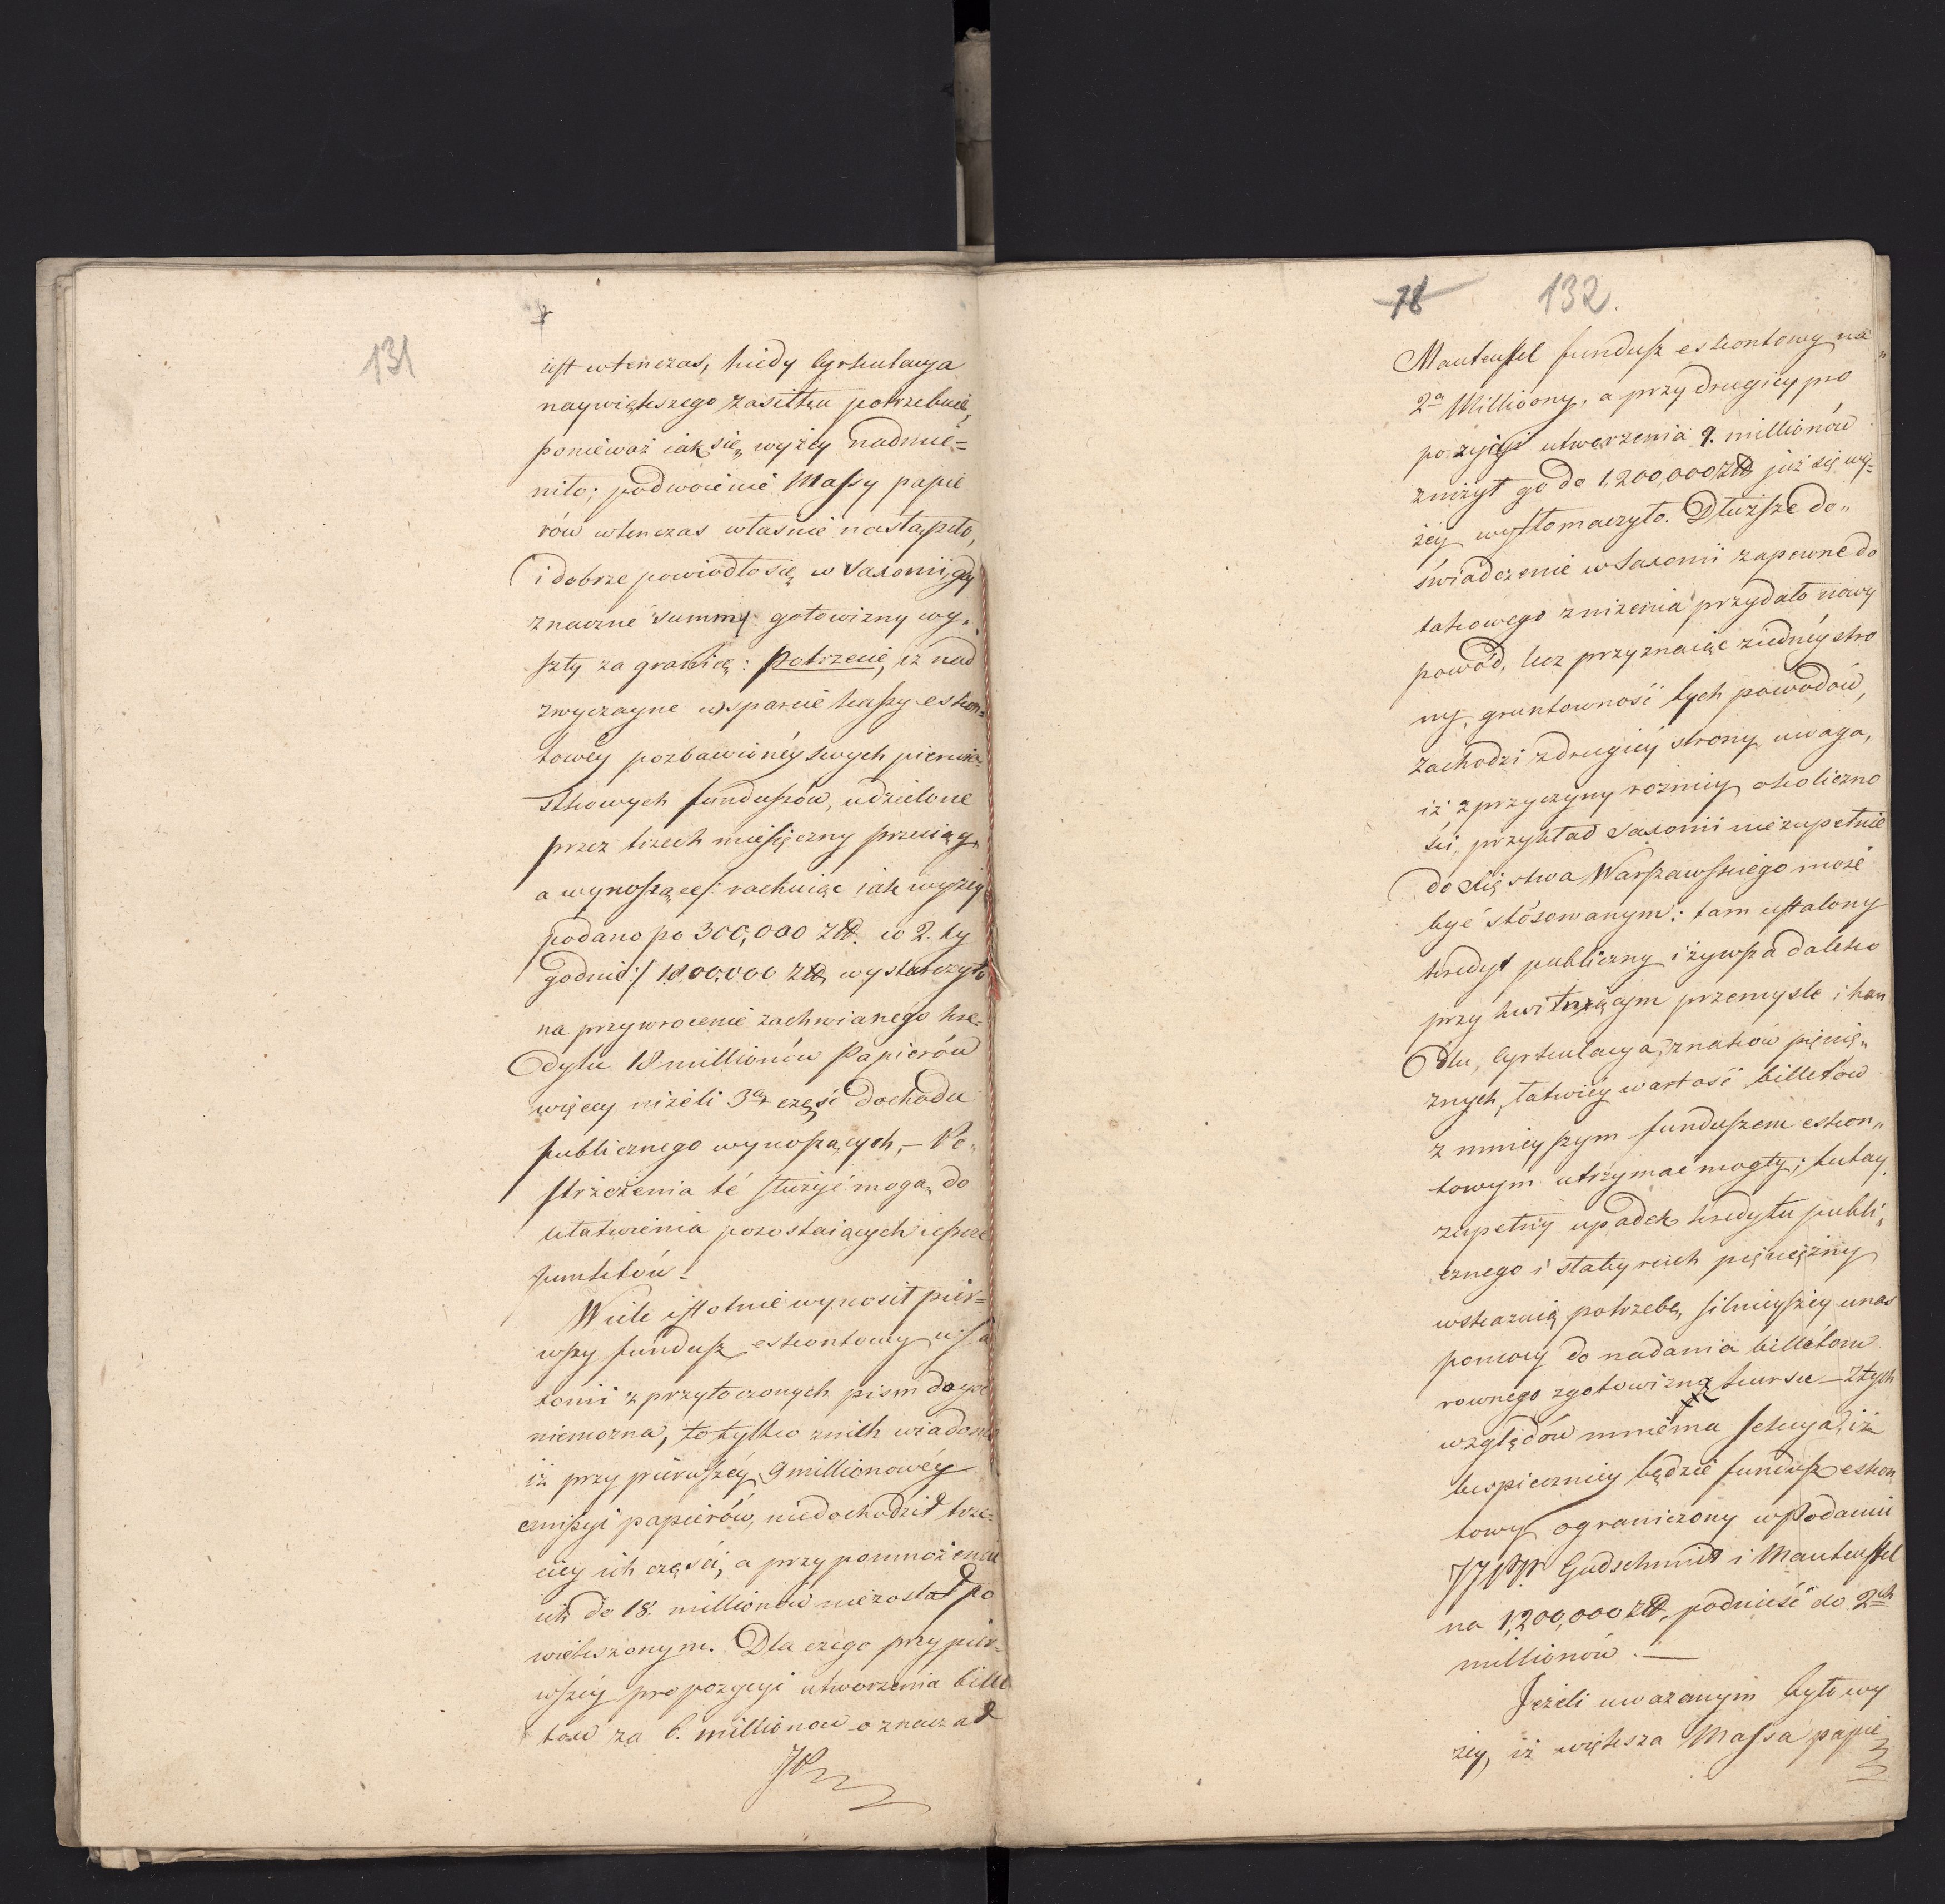 131
iest wtenczas, kiedy Cyrkulacya
naywiększego zasiłku potrzebuie,
ponieważ iak się wyżey nadmie=
niło; podwoienie Massy papie
rów wtenczas własnie nastąpiło,
i dobrze powiodło się w Saxonii, gdy
znaczne summy gotowizny wy„
szły za granicę: Potrzecie, iż nad
zwyczayne wsparcie kassy eskon=
towey pozbawionéy swych pierwia
stkowych funduszów, udzielone
przez trzech miesięczny przeciąg,
a wynoszące /: rachuiąc iak wyżey
podano po 300,000 Złł. w 2. ty
godnie :/ 1800,000 Złł. wystarczyło
na przywrocenie zachwianego kre=
dytu 18 millionów Papierów
więcey niżeli 3ą część dochodu
publicznego wynoszących, – Po„
strzeżenia té służyć mogą do
ułatwienia pozostaiących ieszcze
punktów.
Wiele istotnie wynosił pier=
wszy fundusz eskontowy w Sa
xonii z przytoczonych pism doyść
niemożna, to tylko z nich wiadomo
iż przy pierwszéy 9 millionowéy
emissyi papierów, niedochodził trze=
ciey ich części, a przy pomnożeniu
ich do 18. millionów nie został po
większonym. Dla czego przy pier=
wszéy propozycyi utworzenia bille
tów za 6. millionow oznaczał
JP
78 132.
Manteuffel fundusz eskontowy na
2a Milliony, a przy drugiey pro
pozycyi utworzenia 9. millionów
zniżył go do 1,200,000 Złł już się wy=
żéy wytłomaczyło. Dłuższe do„
świadczenie w Saxonii zapewne do
takowego zniżenia przydało nowy
powód, lecz przyznaiąc z iednéy stro
ny, gruntowność tych powodów,
zachodzi z drugiéy strony uwaga,
iż z przyczyny rożniey okoliczno
ści przykład Saxonii nie zupełnie
do Xięstwa Warszawskiego może
być stósowanym: tam ustalony
kredyt publiczny i żywsza daleko
przy kwitnącym przemysle i han
dlu, Cyrkulacya znaków pienię„
żnych, łatwiéy wartość billetów
z mnieyszym funduszem eskon„
towym utrzymać mogły; tutay
zupełny upadek kredytu publi„
cznego i słaby ruch pieniężny
wskazuią potrzebę, silnieyszéy u nas
pomocy do nadania billetom
rownego z gotowizną kursu – Z tych
względów mniema Sekcya, iż
bespieczniéy będzie fundusz eskon
towy ograniczony w Podaniu
JJPP. Gudschmidt i Manteuffel
na 1,200,000 Złł. podnieść do 2ch
millionów. —
Jeżeli uważanym było wy
żey, iż większa Massa papie